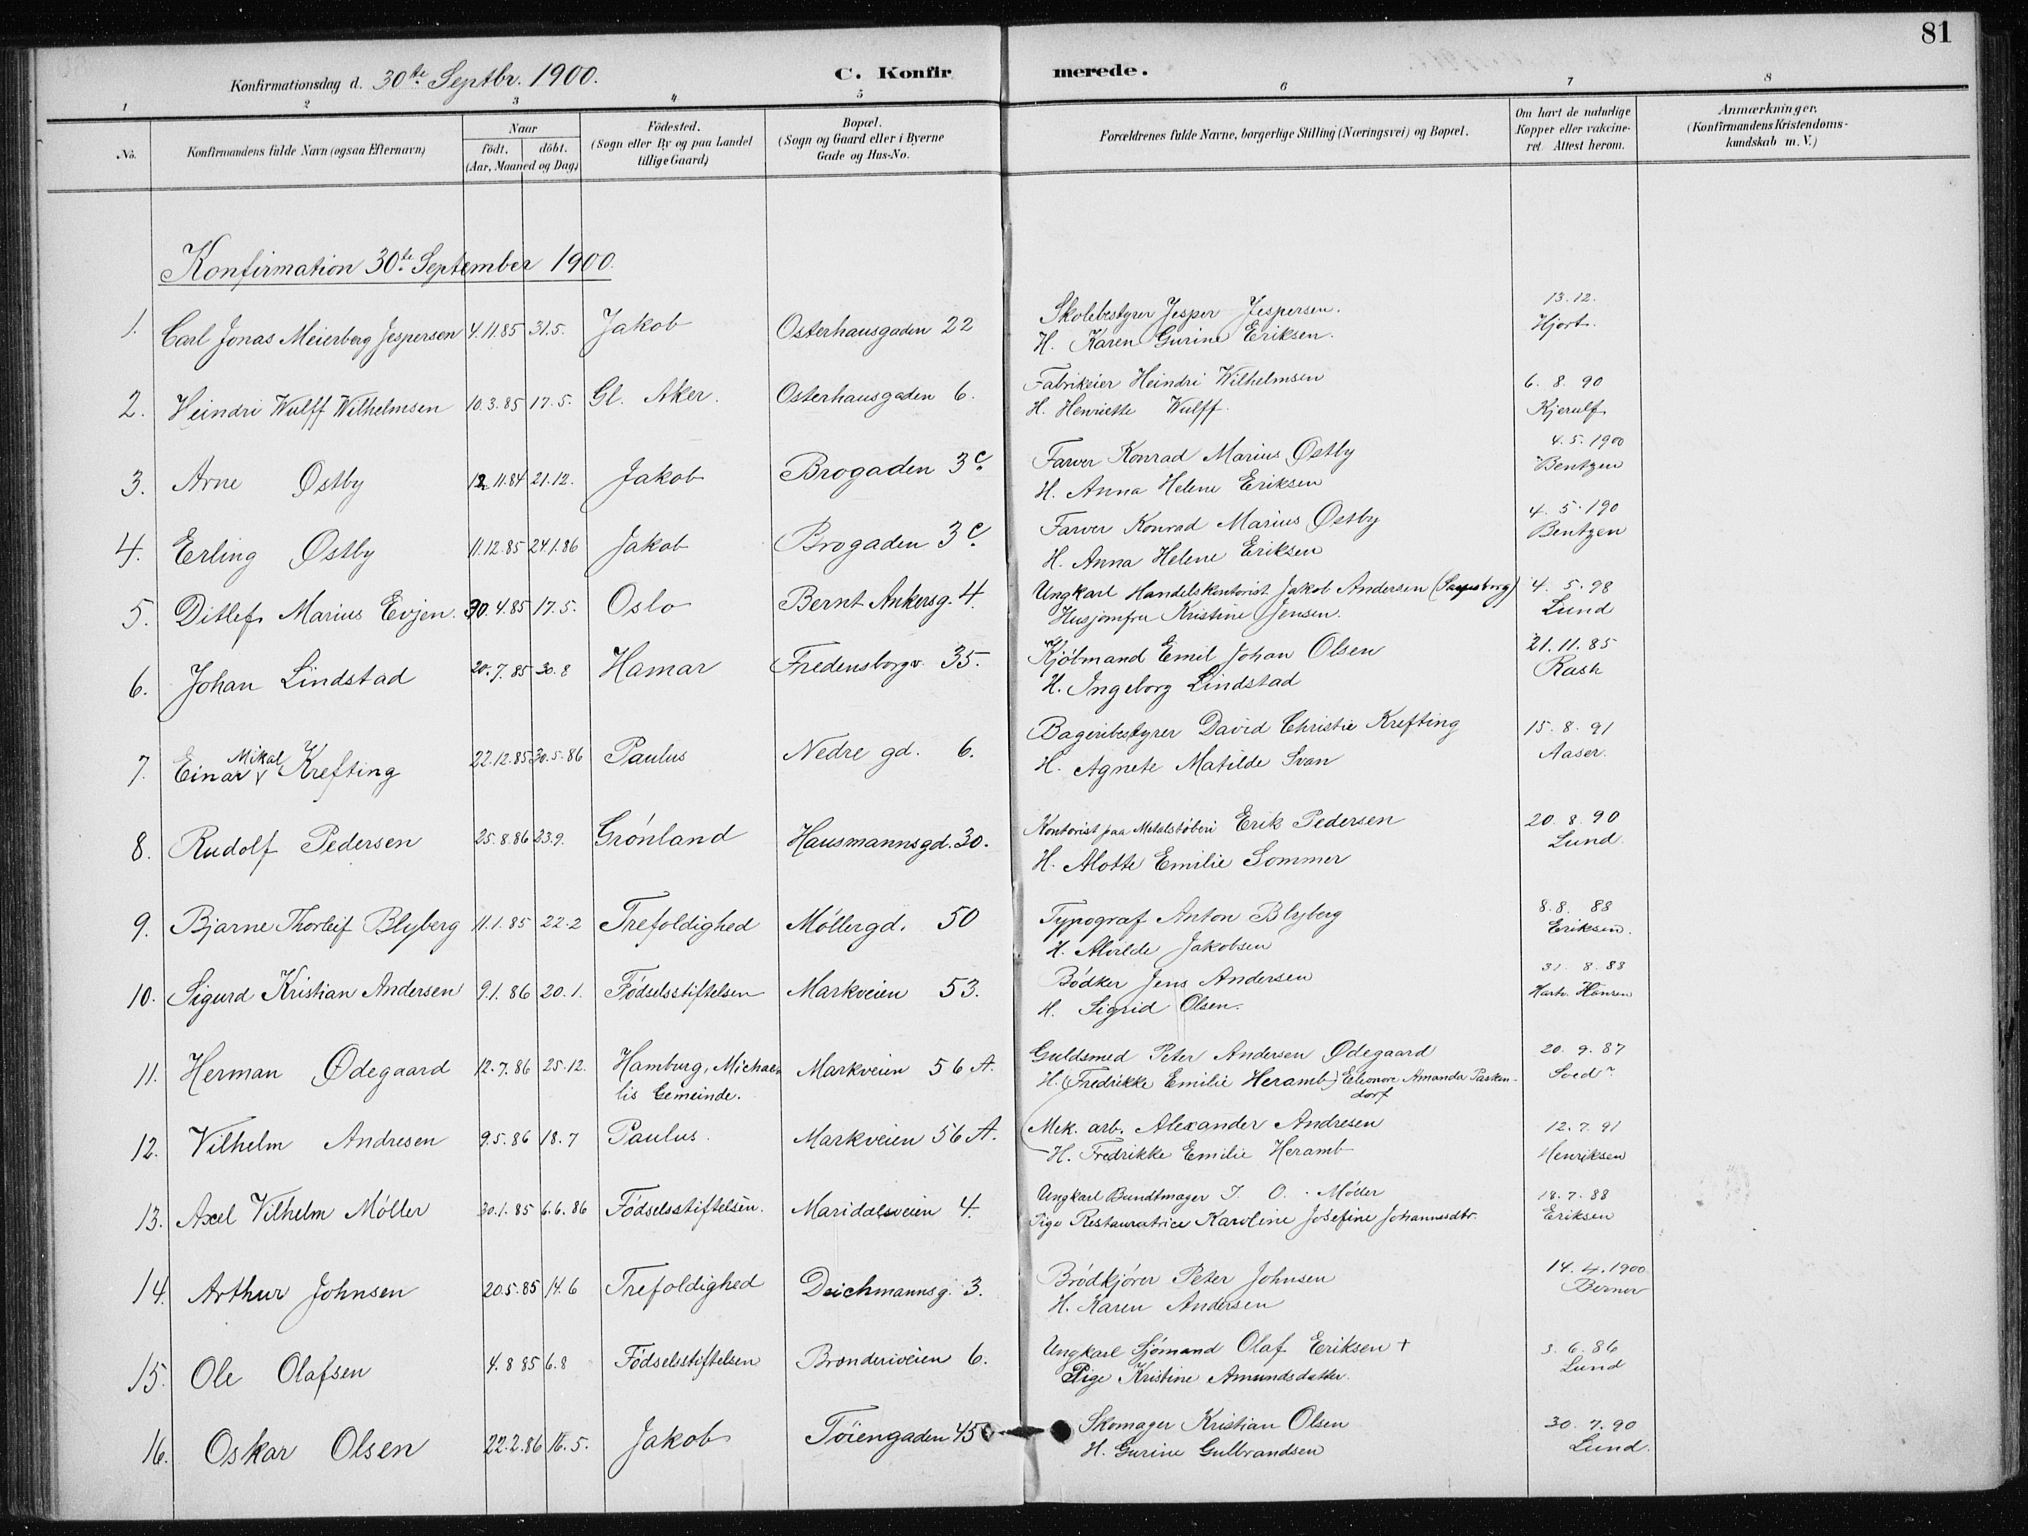 81
Konfirmationsdag d. 30te Septbr. 1900.
C. Konfirmerede.
1 2 3 4 5 6 7 8
No.
Konfirmandens fulde Navn (ogsaa Efternavn)
Naar
födt. döbt.
(Aar, Maaned og Dag)
Födested.
(Sogn eller By og paa Landet
tillige Gaard)
Bopæl.
(Sogn og Gaard eller i Byerne
Gade og Hus-No.
Forældrenes fulde Navne, borgerlige Stilling (Næringsvei) og Bopæl.
Om havt de naturlige
Kopper eller vakcine-
ret. Attest herom.
Anmærkninger.
(Konfirmandens Kristendoms-
kundskab m. V.)
Konfirmation 30te September 1900.
1. Carl Jonas Meierberg Jespersen 4.11.85 31.5. Jakob Osterhausgaden 22
Skolebestyrer Jesper Jespersen. 13.12.
H. Karen Gurine Eriksen. Hjort.
2. Heindri Wulff Wilhelmsen 10.3.85 17.5. Gl. Aker. Osterhausgaden 6.
Fabrikeier Heindri Wilhelmsen 6. 8. 90
H. Henriette Wulff. Kjerulf
3. Arne Østby 12.11.84 21.12. Jakob Brogaden 3c.
Farver Konrad Marius Østby 4.5.1900
H. Anna Helene Eriksen Bentzen
4. Erling Østby 11.12.85 24.1.86 Jakob Brogaden 3c.
Farver Konrad Marius Østby 4. 5. 190
H. Anna Helene Eriksen Bentzen
5. Ditlef Marius Evjen. 30.4.85 17.5. Oslo Bernt Ankersg. 4.
Ungkarl Handelskontorist Jakob Andersen (Sarpsborg) 4. 5. 98
Husjomfru Kristine Jensen. Lund
6. Johan Lindstad 20.7.85 30.8 Hamar Fredensborgv. 35.
Kjöbmand Emil Johan Olsen 21.11.85
H. Ingeborg Lindstad Rask
7. Einar Mikal Krefting 22.12.85 30.5.86 Paulus Nedre gd. 6.
Bageribestyrer David Christie Krefting 15. 8. 91
H. Agnete Matilde Svan Aaser.
8. Rudolf Pedersen 25.8.86 23.9. Grönland Hausmannsgd. 30.
Kontorist paa Metalstöberi Erik Pedersen 20. 8. 90
H. Alotte Emilie Sommer Lund.
9. Bjarne Thorleif Blyberg 11.1.85 22.2 Trefoldighed Möllergd. 50
Typograf Anton Blyberg 8.8. 88
H. Alvilde Jakobsen Eriksen.
10. Sigurd Kristian Andersen 9.1.86 20.1. Födselsstiftelsen Markveien 53.
Bödker Jens Andersen 31. 8. 88
H. Sigrid Olsen. Hartv. Hansen
11. Herman Ødegaard 12.7.86 25.12. Hamburg, Michae-
lis Gemeinde. Markveien 56 A.
Guldsmed Peter Andersen Ødegaard 20. 9. 87
H. (Fredrikke Emilie Heramb) Eleonore Amanda Pasken-
dorf
12. Vilhelm Andresen 9.5.86 18.7 Paulus. Markveien 56 A.
Mek. arb. Alexander Andresen 12. 7. 91
H. Fredrikke Emilie Heramb Henriksen
13. Axel Vilhelm Möller 30.1.85 6.6.86 Födselsstiftelsen. Maridalsveien 4.
Ungkarl Bundtmager J. O. Möller 18. 7. 88
Pige Restauratrice Karoline Josefine Johannsdtr. Eriksen
14. Arthur Johnsen 20.5.85 14.6 Trefoldighed Deichmannsg. 3.
Brödkjörer Peter Johnsen 14. 4. 1900
H. Karen Andersen Berner
15. Ole Olafsen 4.8.85 6.8 Födselsstiftelsen Brenderiveien 6.
Ungkarl Sjömand Olaf Eriksen + 3. 6. 86
Pige Kristine Amundsdatter. Lund
16. Oskar Olsen 22.2.86 16.5. Jakob Töiengaden 45
Skomager Kristian Olsen 30. 7. 90
H. Gurine Gulbrandsen Lund.